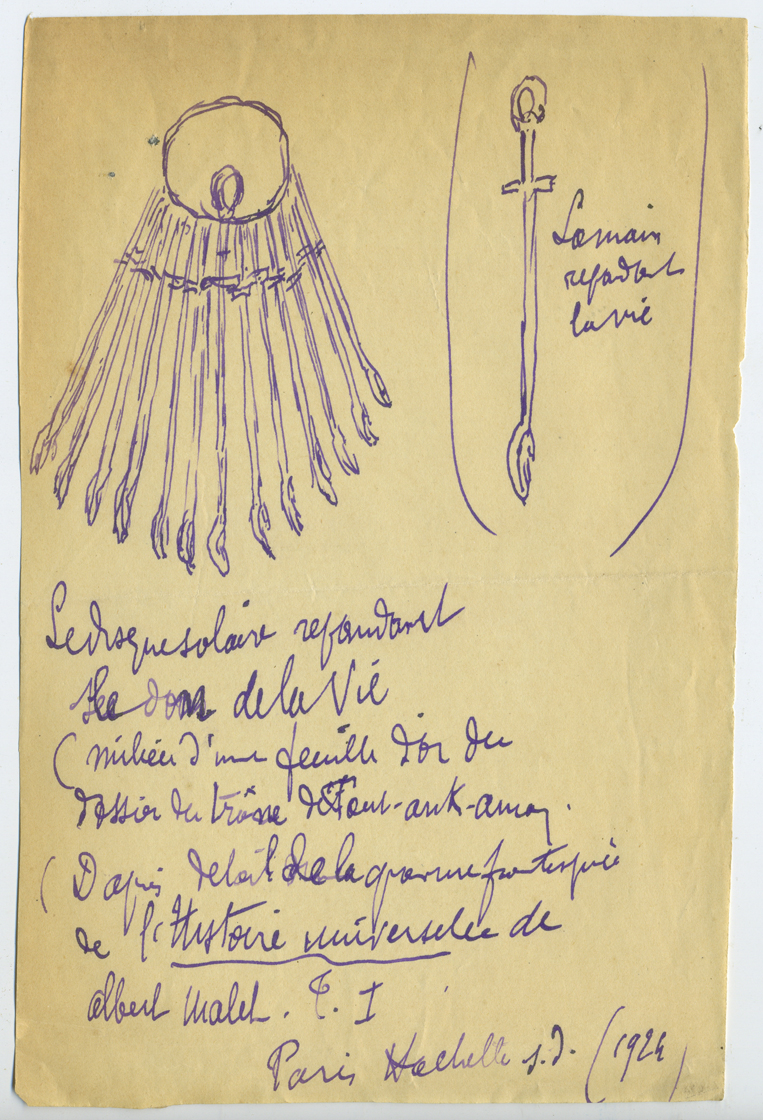 La main
repadant
la vie
Le disque solaire repandant
le don de la Vie
(milieu d'une feuille d'or du
dossier du trône de Tout-ank-amon.
(D'apres detail de la gravure frontispice
de l'Histoire universelle de
albert Malet. T. I
Paris Hachette s.d. (1924)